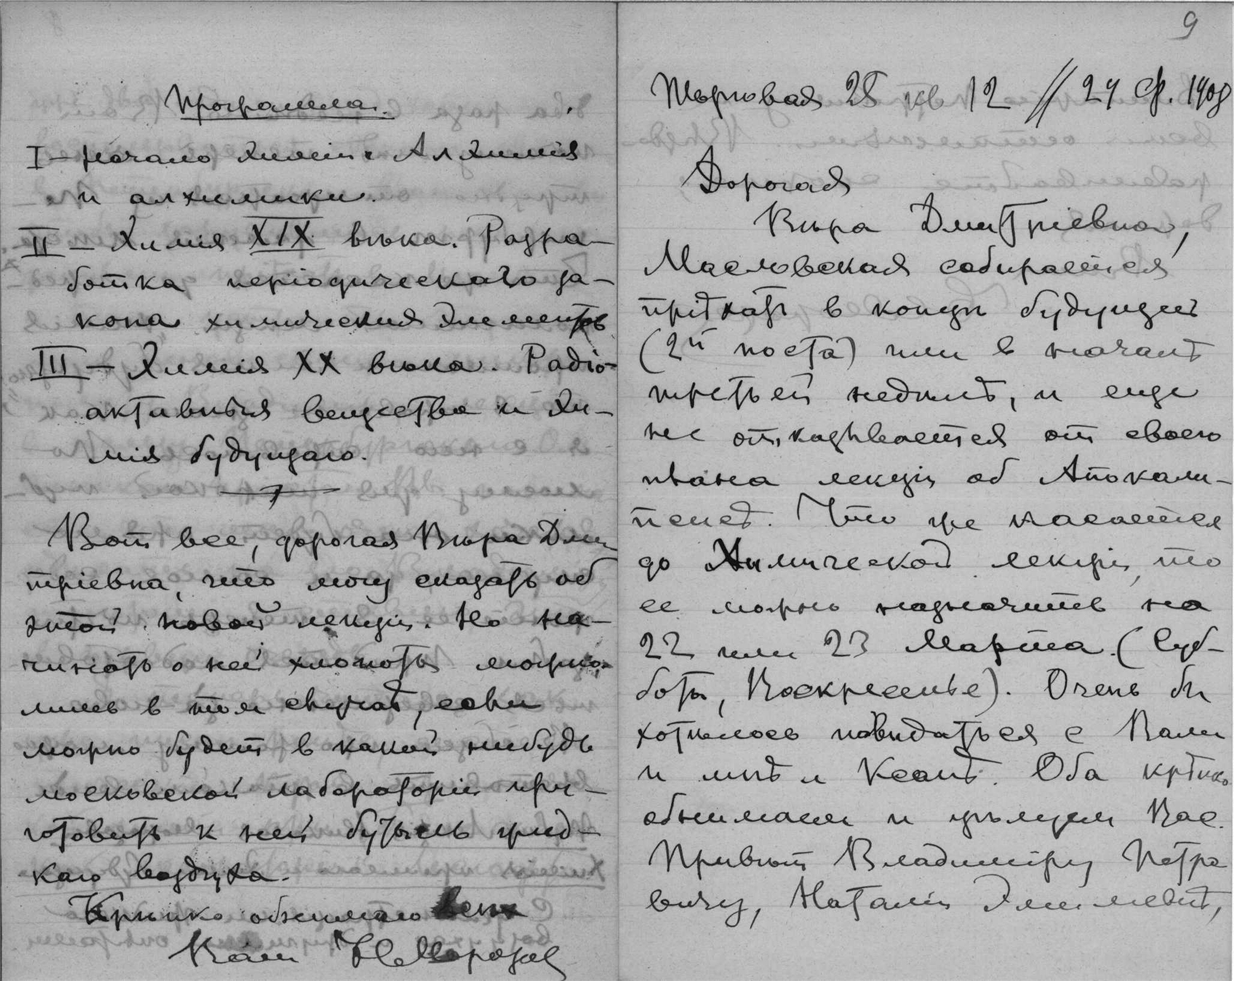 Программа.
I — Начало химіи: Алхимія
и алхимики.
II — Химія XIX вѣка. Разра-
ботка періодическаго за-
кона химическихъ элементов
III — Химія XX вѣка. Радіо-
активныя вещества и хи-
мія будущаго.
Вот все, дорогая Вѣра Дми-
тріевна, что могу сказать об
этой новой лекціи. Но на-
чинать о ней хлопоты можно
лишь в том случаѣ, если
можно будет в какой нибудь
московской лабораторіи при-
готовить к ней бутыль жид-
каго воздуха.
Крѣпко обнимаю
Ваш Н. Морозов
9
Торговая 25 кв 12 // 24 ф. 1908
Дорогая
Вѣра Дмитріевна,
Масловская собирается
пріѣхать в концѣ будущей
(2й поста) или в началѣ
третьей недѣлѣ, и еще
не отказывается от своего
плана лекціи об Апокали-
псисѣ. Что же касается
до Химической лекціи, то
ее можно назначить на
22 или 23 Марта (Суб-
бота, Воскресенье). Очень бы
хотѣлось повидаться с Вами
и мнѣ и Ксанѣ. Оба крѣпко
обнимаем и цѣлуем Вас.
Привѣт Владиміру Петро
вичу, Наталіи